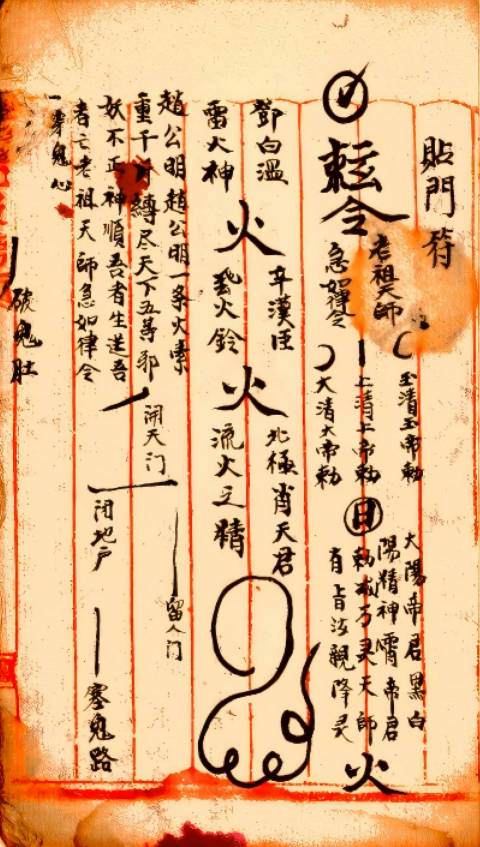 貼門符
敕令
老祖天師
急如律令
玉清玉帝勅
上清上帝勅
太清大帝勅
日
太陽帝君黑白
陽精神霄帝君
勅
灵天師
有旨
親降灵
火
鄧白溫
雷火神
火
辛漢臣
火鈴
火
北極肖天君
流火之精
趙公明趙公明一条火索
重千斤縛尽天下五等邪
妖不正神順吾者生逆吾
者亡老祖天師急如律令
開天门
閉地户
留人门
塞鬼路
一穿鬼心
破鬼肚